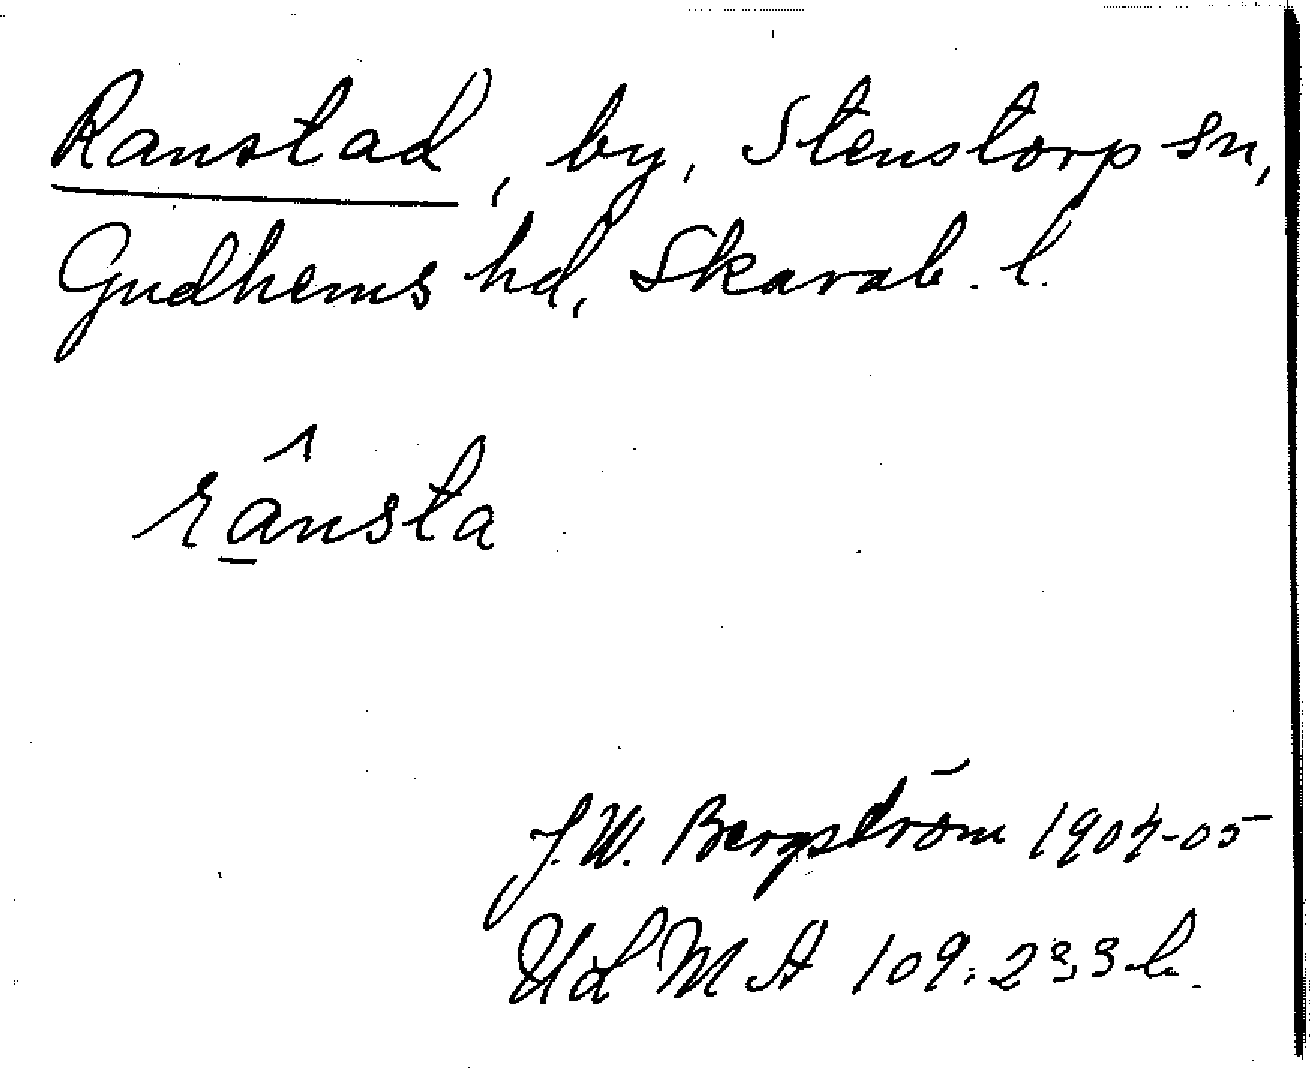 Ranstad, by, Stenstorp sn,
Gudhems hd, Skarab. l.
râ̱nsta
J. W. Bergström 1904-05
ULMA 109:233 b.